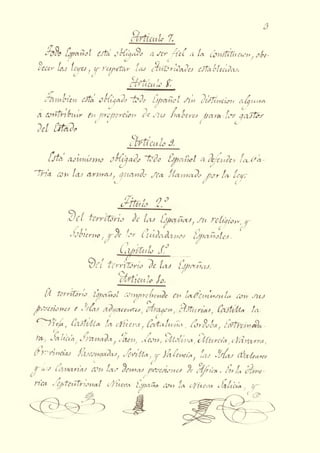 3
Artículo 7.
Todo Español está obligado a ser fiel a la Constitucion, obe-
decer las leyes, y respetar las Autoridades establecidas.
Artículo 8.
Tambien está obligado todo Español sin distincion alguna
a contribuir en proporcion de sus haberes para los gastos
del Estado
Artículo 9.
Está asimismo obligado todo Español a defender la Pa-
tria con las armas, quando sea llamado por la ley.
Título 2.º
Del territorio de las Españas, su religion, y
Gobierno, y de los Ciudadanos Españoles.
Capítulo 1.º
Del territorio de las Españas.
Artículo 10.
El territorio Español comprehende en la Península con sus
posesiones e Islas adyacentes, Aragon, Asturias, Castilla la
Vieja, Castilla la Nueva, Cataluña, Cordoba, Extremadu-
ra, Galicia, Granada, Jaen, Leon, Molina, Murcia, Navarra,
Provincias Vascongadas, Sevilla, y Valencia, las Islas Baleares
y las Canarias con las demas posesiones de Africa. En la Ame-
rica Septentrional Nueva España con la Nueva Galicia, y